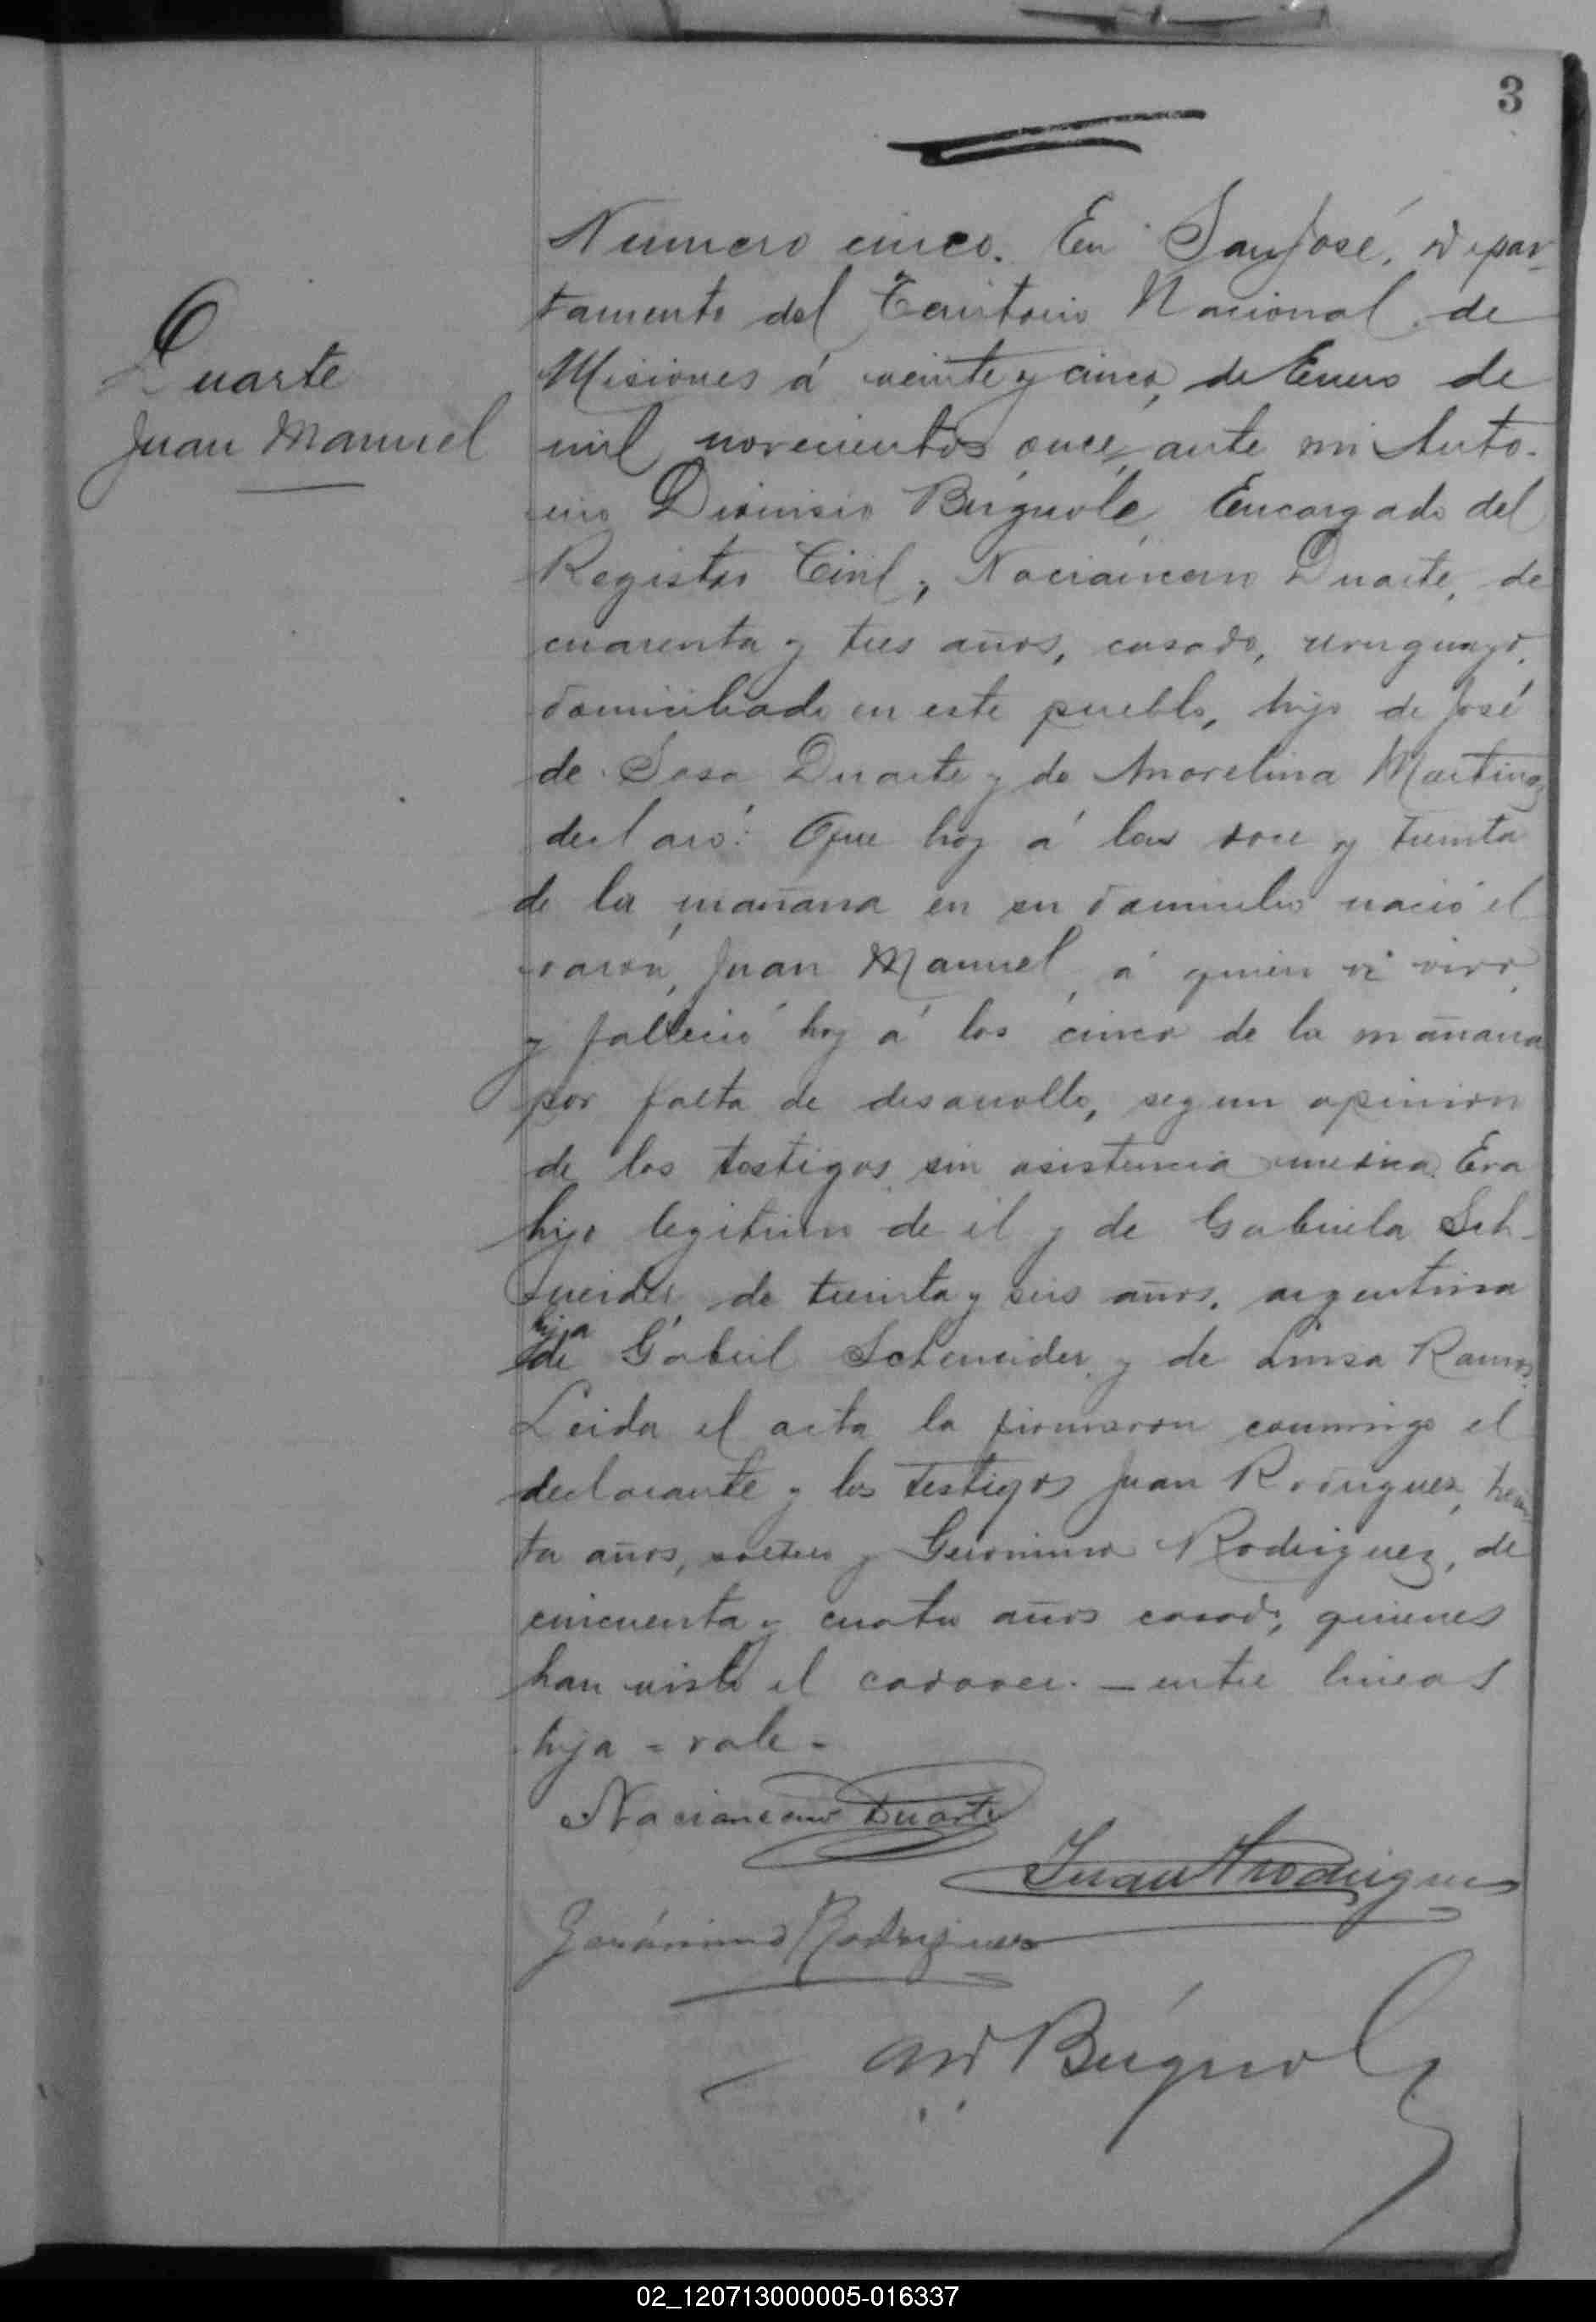 3
Numero cinco. En San José, Depar-
tamento del Territorio Nacional de
Duarte
Juan Manuel
Misiones á veinte y cinco, de Enero de
mil novecientos once, ante mi Anto-
nio Dionisio Búgnole, Encargado del
Registro Civil, Nacianceno Duarte, de
cuarenta y tres años, casado, uruguayo,
domiciliado en este pueblo, hijo de José
de Sosa Duarte y de Amorelina Martinez
declaró: Que hoy á las doce y treinta
de la mañana en su domicilio nació el
varon, Juan Manuel, á quien vi vivo,
y falleció hoy á las cinco de la mañana
por falta de desarrollo, segun opinion
de los testigos, sin asistencia medica. Era
hijo legitimo de él y de Gabriela Sch-
neider, de treinta y seis años, argentina
hija
de Gabriel Schneider y de Luisa Ramos.
Leida el acta la firmaron conmigo el
declarante y los testigos Juan Rodriguez, trein
ta años, soltero y Geronimo Rodriguez, de
cincuenta y cuatro años casado, quienes
han visto el cadaver. — entre lineas
hija = vale -
Nacianceno Duarte
Juan Rodrigues
Gerónimo Rodriguez
AD Búgnole
02_120713000005-016337